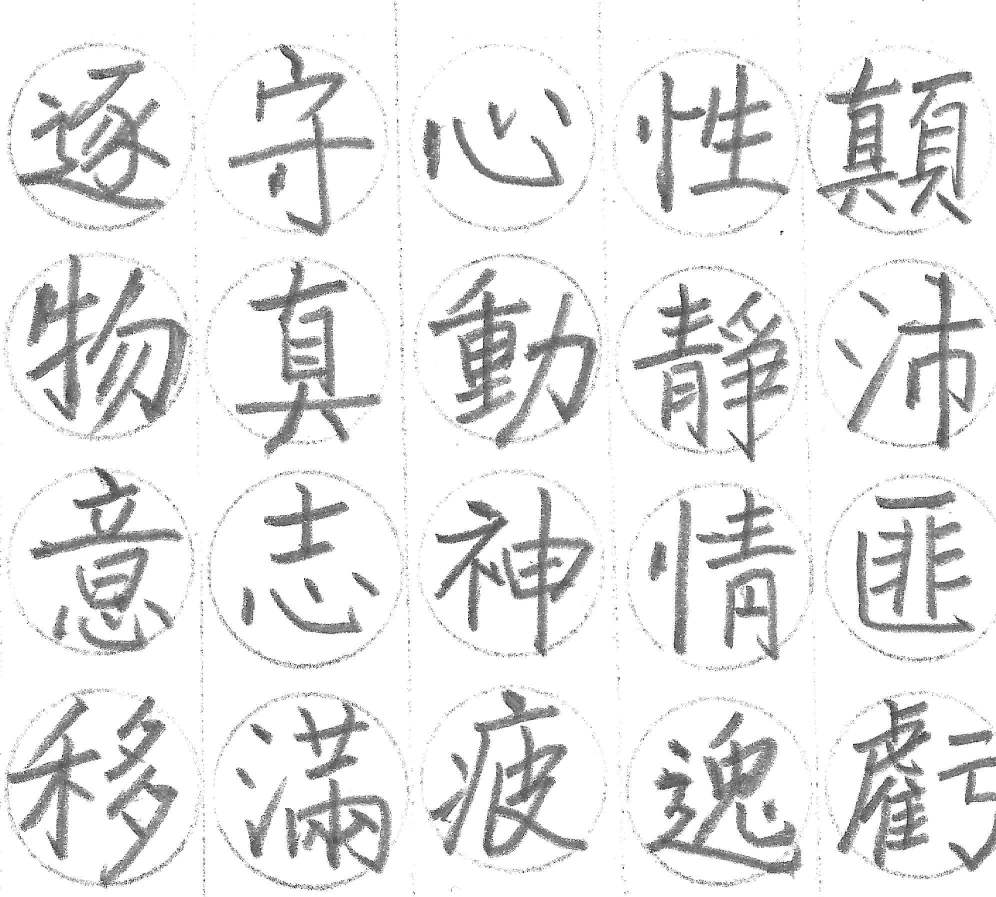 顛沛匪虧
性靜情逸
心動神疲
守真志滿
逐物意移